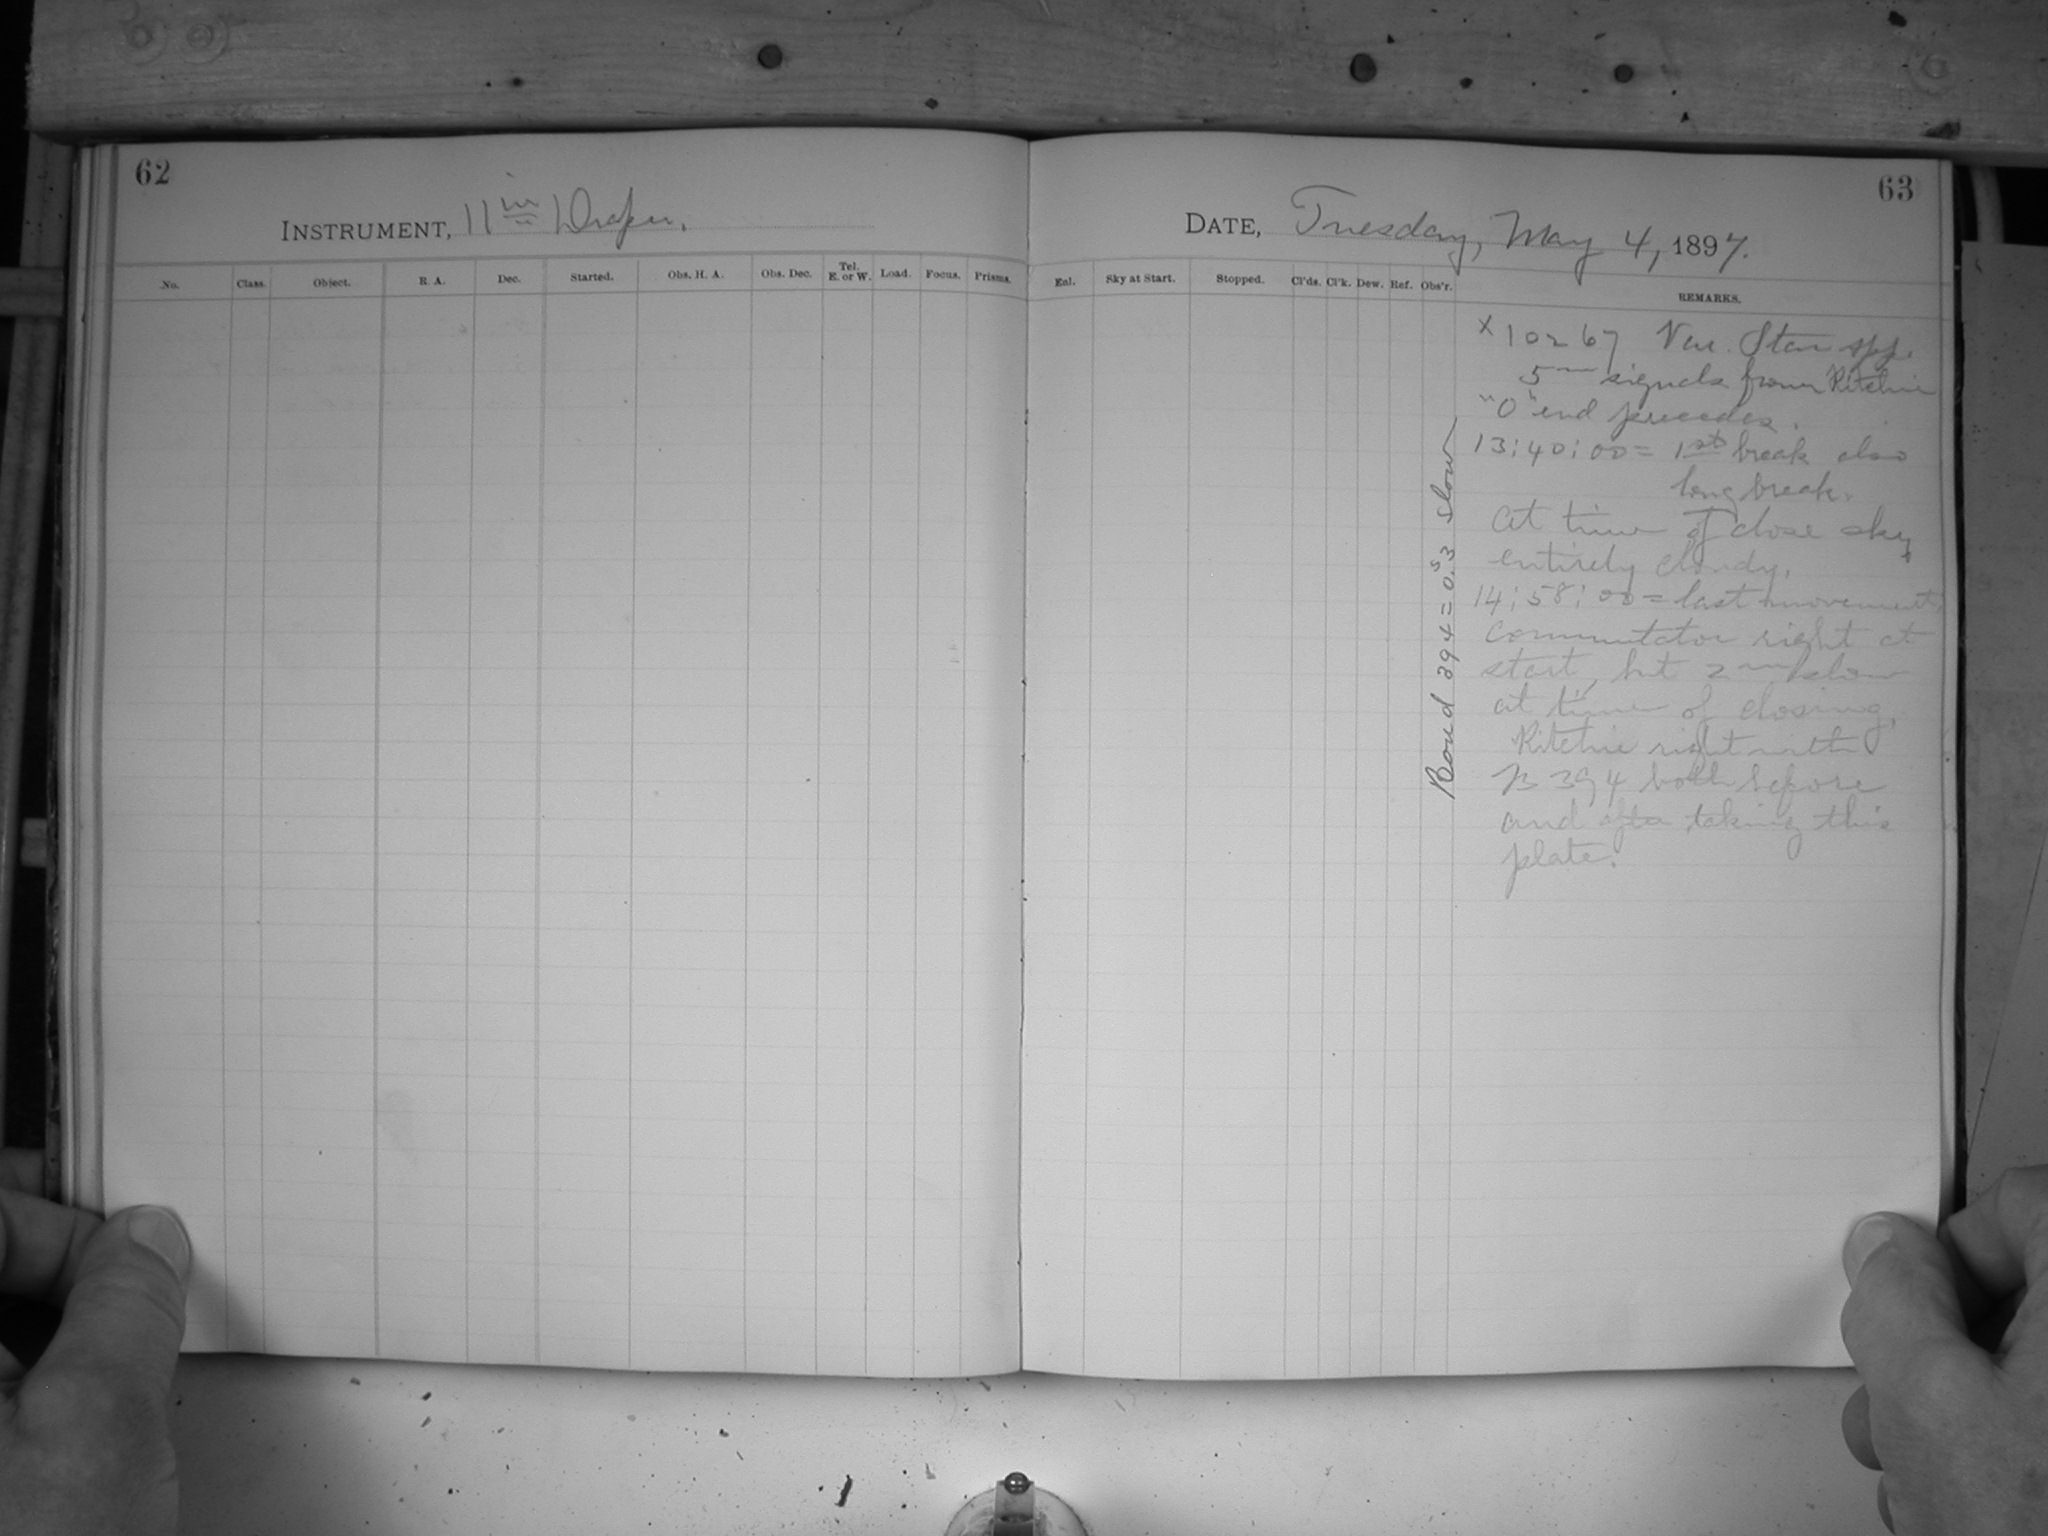 62
INSTRUMENT, 11 in Draper.
No. Class. Object. R. A. Dec. Started. Obs. H. A. Obs. Dec. Tel. E. or W. Load. Focus. Prisms.
63
DATE, Tuesday, May 4, 1897.
Enl. Sky at Start. Stopped. Cl'ds. Cl'k. Dew. Ref. Obs'r. REMARKS.
X 10267 Var. Star app.
5m signals from Ritchie
"0" end precedes.
13:40:00 = 1st break also
long break.
At time of close sky
entirely cloudy.
14:58:00 = last movement
Commutator right at
start, but 2m slow
at time of closing.
Ritchie right with
B 394 both before
and after taking this
plate.
Bond 394 = 0.s3 slow